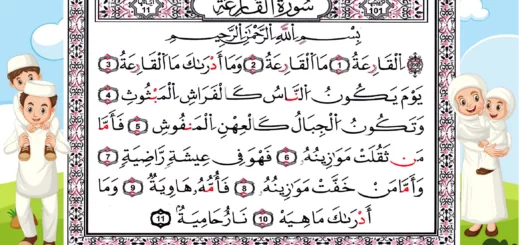 سُورَةُ الْقَارِعَةُ
101
11
بِسْمِ اللَّهِ الرَّحْمَٰنِ الرَّحِيمِ
الْقَارِعَةُ 1 مَا الْقَارِعَةُ 2 وَمَا أَدْرَىٰكَ مَا الْقَارِعَةُ 3
يَوْمَ يَكُونُ النَّاسُ كَالْفَرَاشِ الْمَبْثُوثِ 4
وَتَكُونُ الْجِبَالُ كَالْعِهْنِ الْمَنفُوشِ 5 فَأَمَّا
مَن ثَقُلَتْ مَوَازِينُهُ 6 فَهُوَ فِي عِيشَةٍ رَّاضِيَةٍ 7
وَأَمَّا مَنْ خَفَّتْ مَوَازِينُهُ 8 فَأُمُّهُ هَاوِيَةٌ 9 وَمَا
أَدْرَىٰكَ مَا هِيَهْ 10 نَارٌ حَامِيَةٌ 11